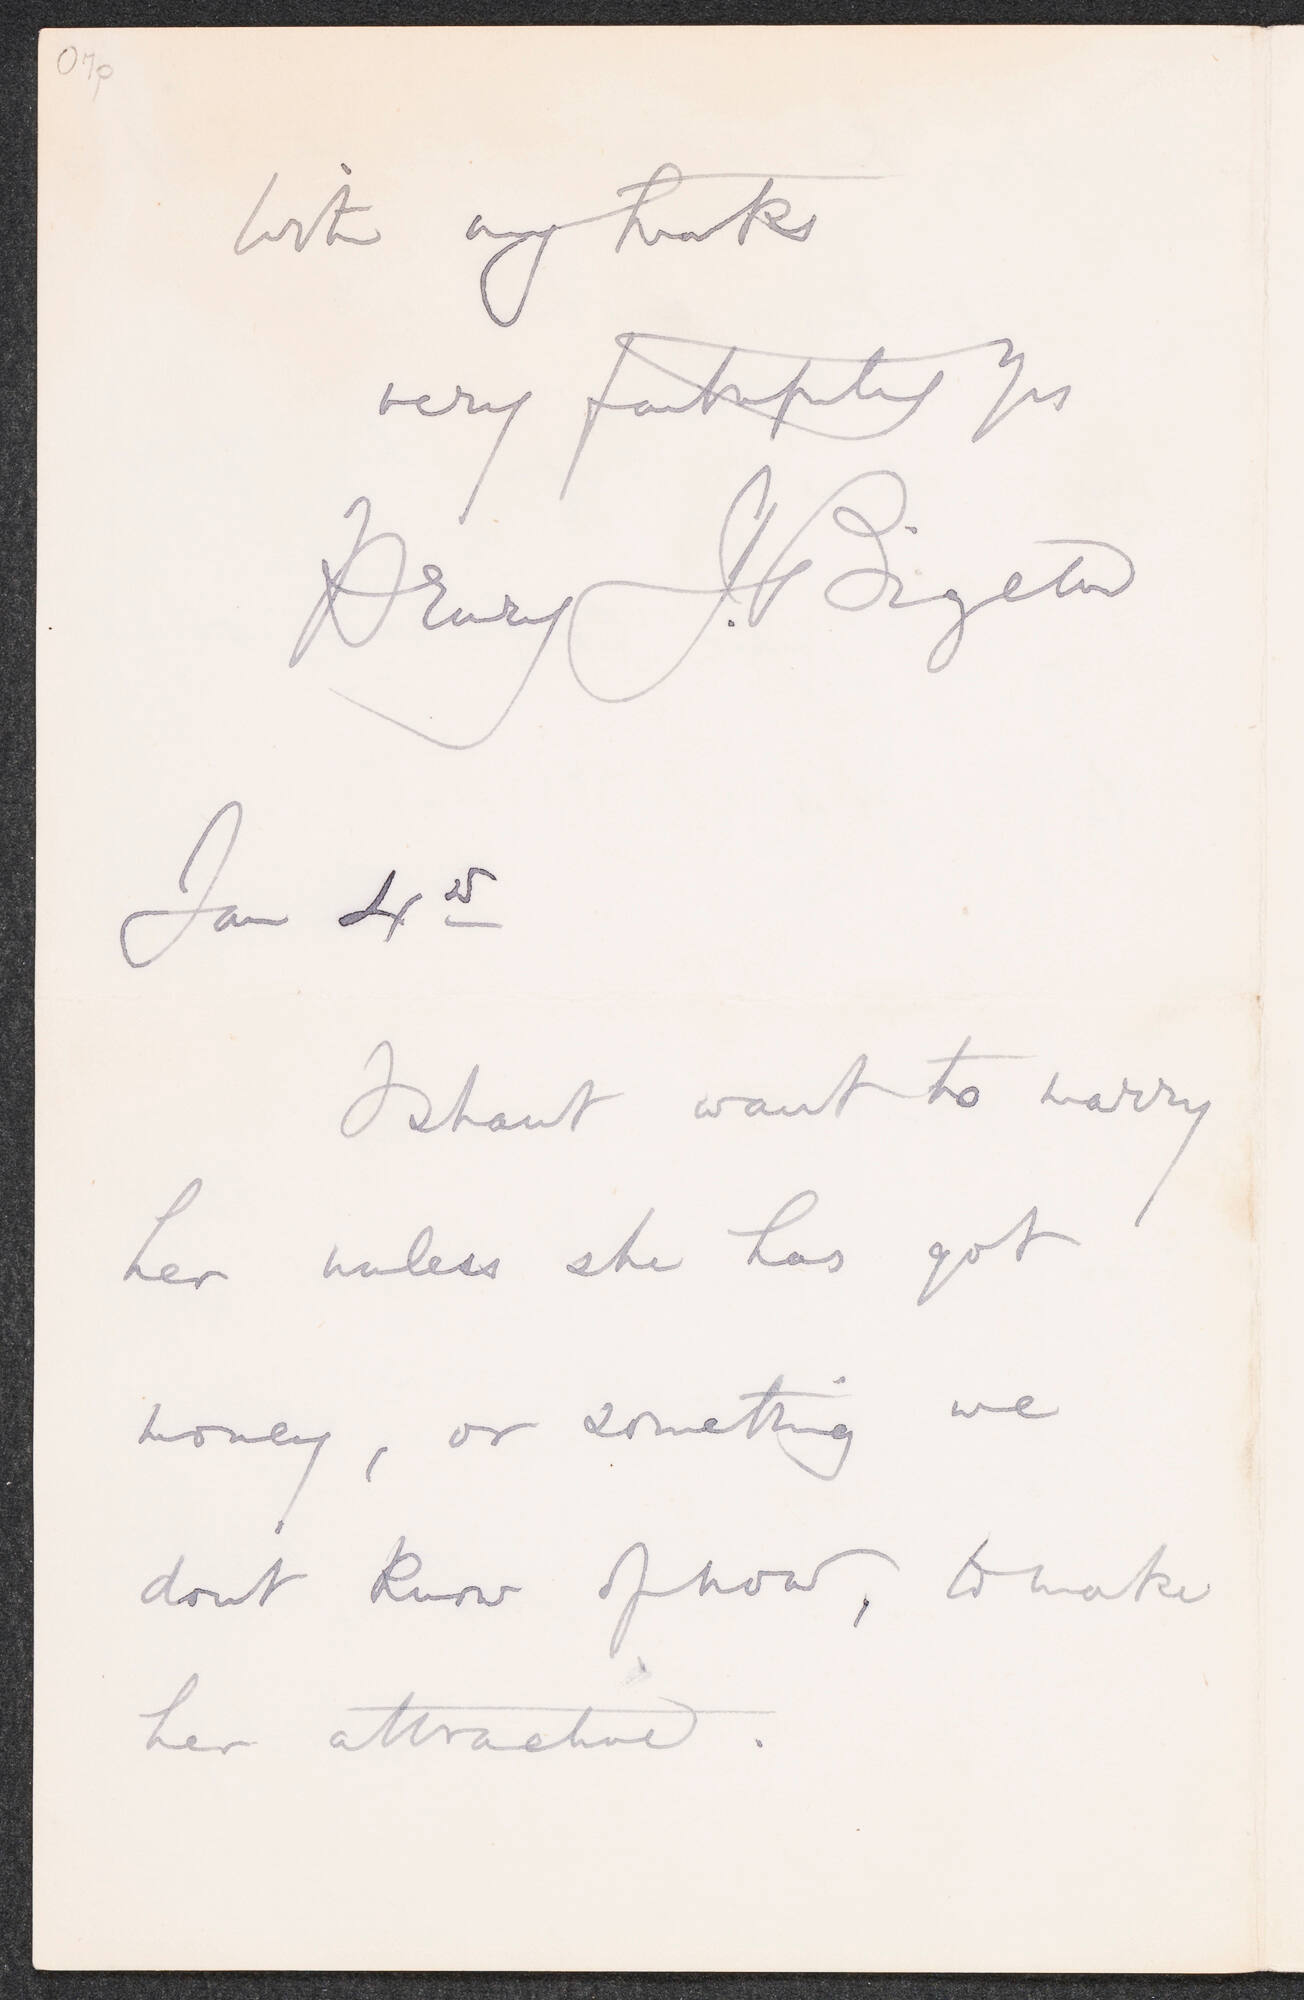 with my thanks
very faithfully Yrs
Henry J. Bigelow
Jan 4th
I shant want to marry
her unless she has got
money, or something we
dont know of now, to make
her attractive.